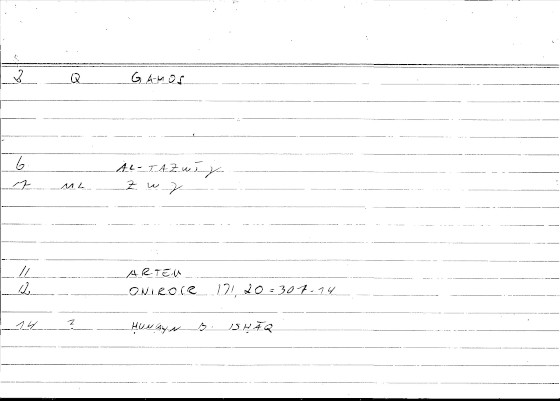 2 Q GAMOS
6 AL-TAZWĪǧ
7 ML ZWǧ
11 ARTEM
12 ONIROCR 171, 20 = 307.14
14 ? ḤUNAYN B. ISḤĀQ